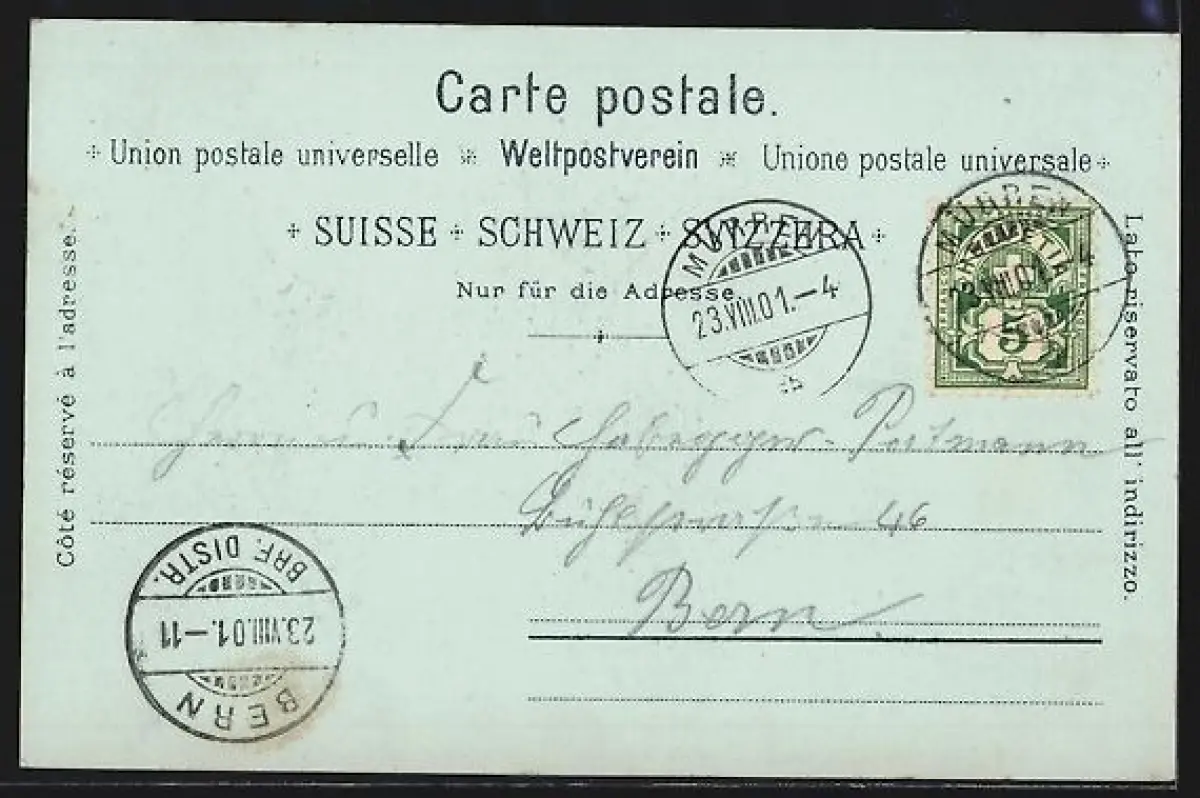 Carte postale.
Union postale universelle Weltpostverein Unione postale universale
SUISSE SCHWEIZ SVIZZERA
Nur für die Adresse
Côté réservé à l'adresse.
Lato riservato all' indirizzo.
MÜRREN
23.VIII.01.–4
MÜRREN
VIII.01. 4
HELVETIA
FRANCO
5
Postmann
46
Bern
BRF. DISTR.
23.VIII.01.–11
BERN